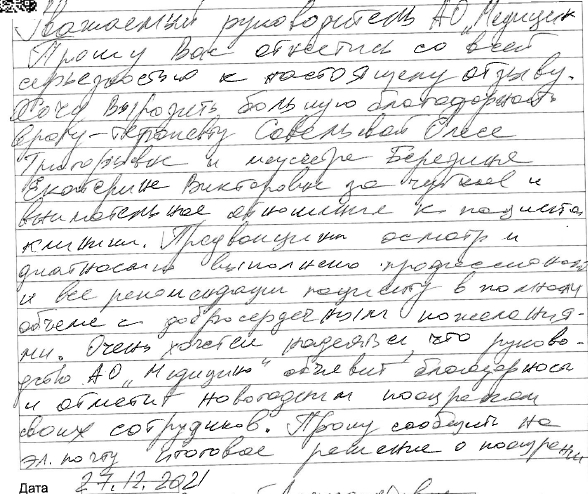 Уважаемый руководитель АО „Медицин
Прошу Вас отнестись со всей
серьезностью к настоящему отзыву.
Хочу выразить большую благодарность
врачу-терапевту Савельевой Олесе
Григорьевне и медсестре Берединe
Екатерине Викторовне за чуткое и
внимательное отношение к пациентам
клиники. Предвакцинн осмотр и
диагностика выполнено профессионально
и все рекомендации пациенту в полном
объеме с добросердечным пожелания-
ми. Очень хочется надеяться, что руково-
дство АО „Медицина" объявит благодарность
и отметит новогодним поощрением
своих сотрудников. Прошу сообщить на
эл. почту итоговое решение о поощрении
Дата 27.12.2021